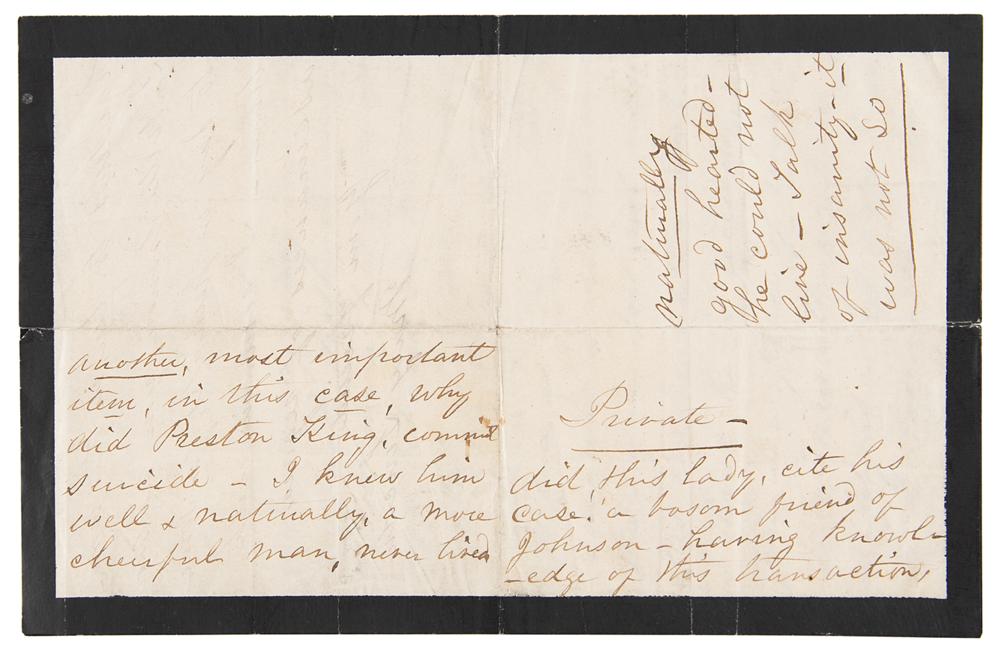 another, most important
item, in this case, why
did Preston King, commit
suicide – I knew him
well & naturally, a more
cheerful man, never lived
Private –
did, this lady, cite his
case, a bosom friend of
Johnson – having knowl-
-edge of this transaction,
naturally
good hearted –
he could not
live – Talk
of insanity – it
was not so